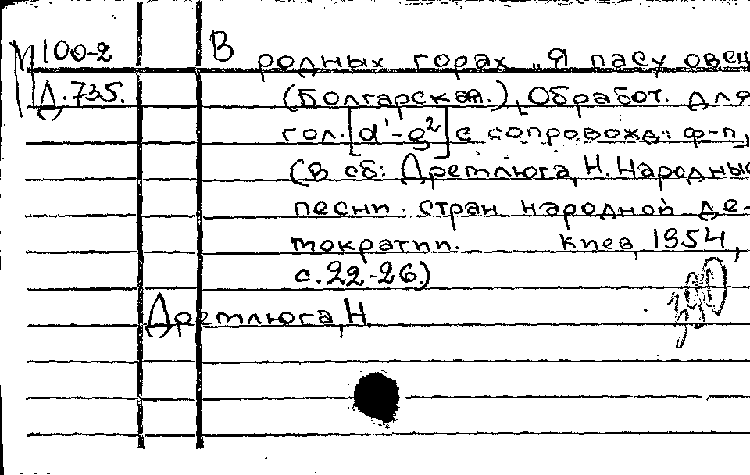 М100-2
Д.735.
В родных горах „Я пасу овец
(Болгарская.) [Обработ. для
гол. [d'-g²] с сопровожд: ф-п,
(В сб: Дремлюга, Н. Народные
песни. стран народной де-
мократии. Киев, 1954,
с.22-26)
Дремлюга, Н
390